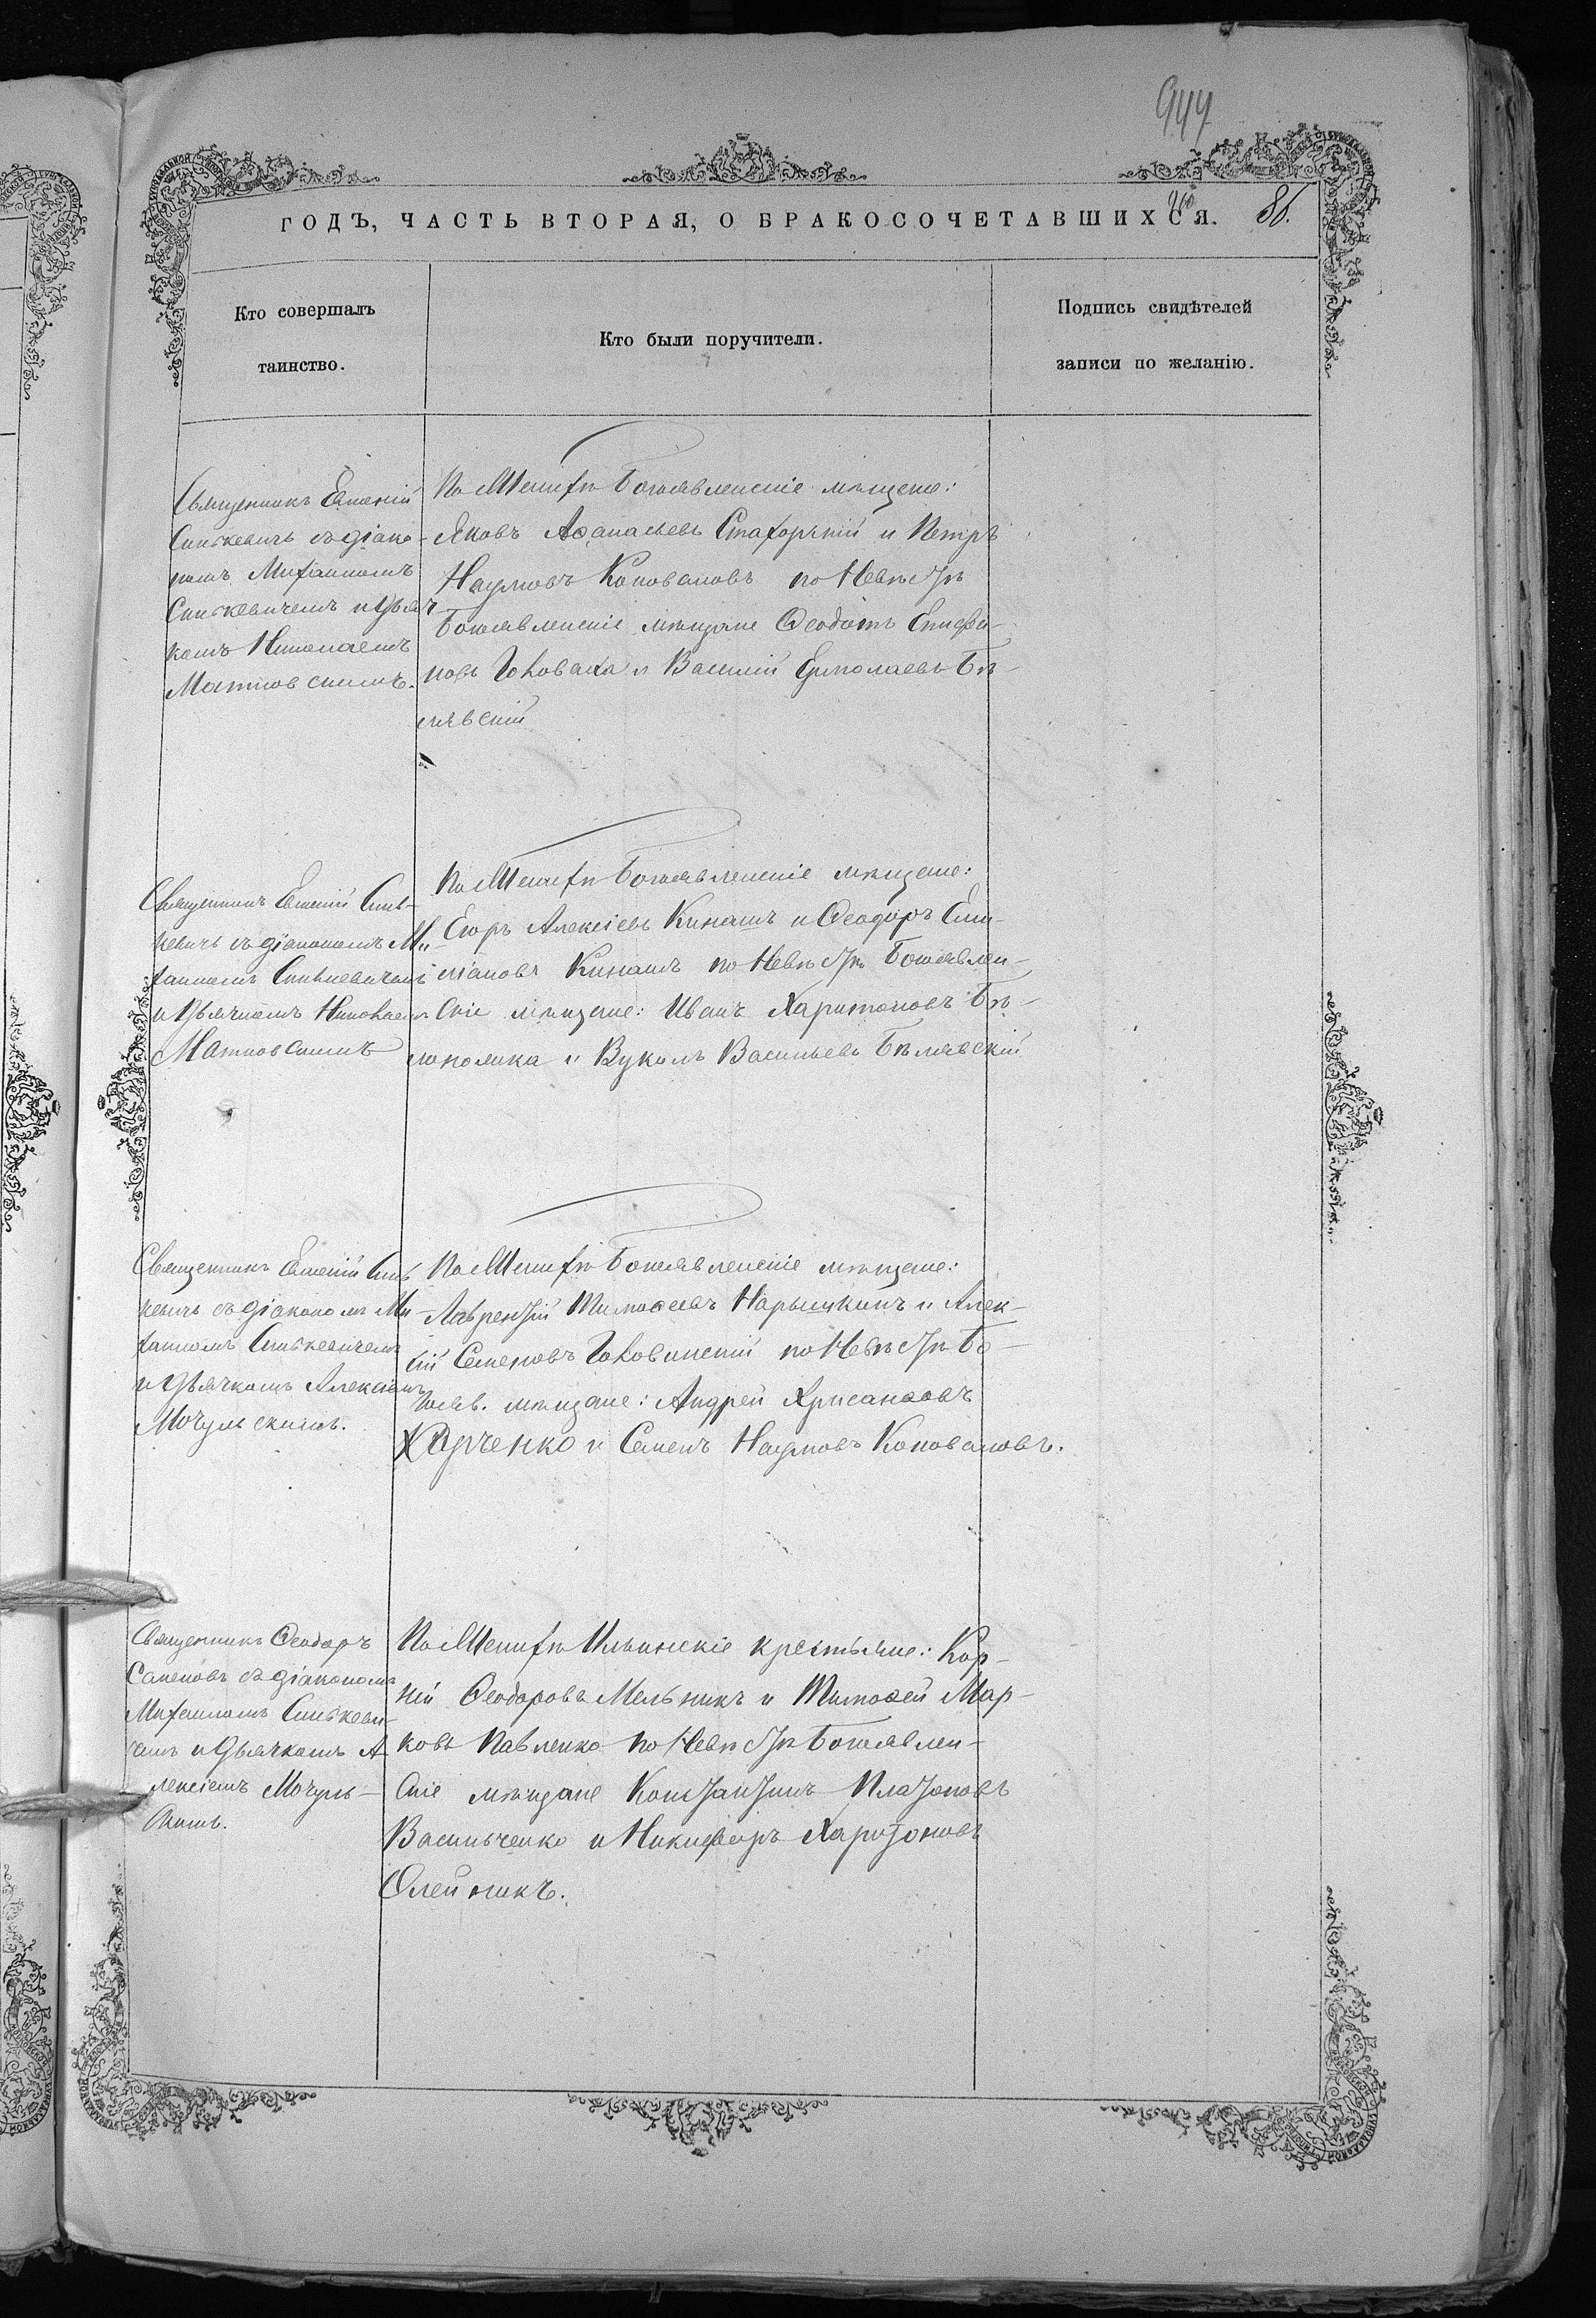 944
ГОДЪ, ЧАСТЬ ВТОРАЯ, О БРАКОСОЧЕТАВШИХСЯ. 86.
Кто совершалъ
таинство.
Кто были поручители.
Подпись свидѣтелей
записи по желанію.
Священникъ Евгеній
Синькевичъ съ діако-
номъ Михаиломъ
Синькевичемъ и дьяч
комъ Николаемъ
Матковскимъ.
По Женихѣ Богоявленскіе мѣщане:
Яковъ Аѳанасьевъ и Петръ
Наумовъ Коноваловъ по Невѣстѣ
Богоявленскіе мѣщане Ѳеодотъ Епифа-
новъ Головаха и Василій Ермолаевъ Бѣ-
лявскій
Священникъ Евгеній Синь-
кевичъ съ діакономъ Ми
хаиломъ Синькевичемъ
и дьячкомъ Николаемъ
Матковскимъ
По Женихѣ Богоявленскіе мѣщане:
Егоръ Алексѣевъ Кинашъ и Ѳеодоръ Еми-
ліановъ Кинашъ по Невѣстѣ Богоявлен-
скіе мѣщане: Иванъ Харитоновъ Бѣ-
локолика и Вуколъ Васильевъ Бѣлявскій
Священникъ Евгеній Синь
кевичъ съ діакономъ Ми
хаиломъ Синькевичемъ
и дьячкомъ Алексіемъ
Мочульскимъ.
По Женихѣ Богоявленскіе мѣщане:
Лаврентій Тимоѳеевъ Нарышкинъ и Алек-
сій Семеновъ Головинскій по Невѣстѣ Бо-
гоявл. мѣщане: Андрей Хрисанѳовъ
Харченко и Семенъ Наумовъ Коноваловъ.
Священникъ Ѳеодоръ
Семеновъ съ діакономъ
Михаиломъ Синькеви-
чемъ и дьячкомъ А
лексіемъ Мочуль-
скимъ.
По Женихѣ Ильинскіе крестьяне: Кор-
ній Ѳеодоровъ Мельникъ и Тимоѳей Мар-
ковъ Павленко по Невѣстѣ Богоявлен-
скіе мѣщане Константинъ Платоновъ
Васильченко и Никифоръ Харитоновъ
Олейникъ.